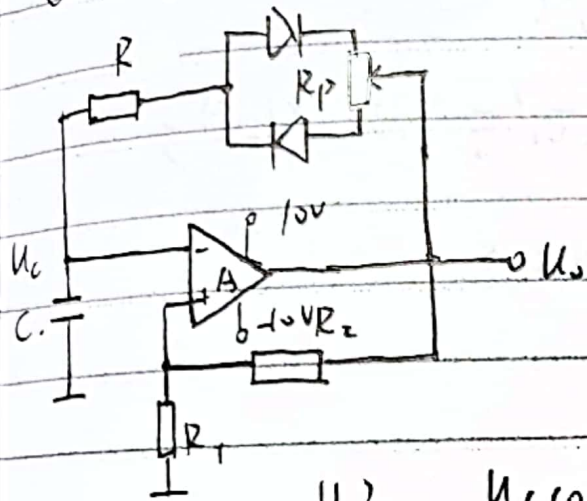 R
Rp
10V
Uc
-
A
Uo
+
C.
-10V R2
R1